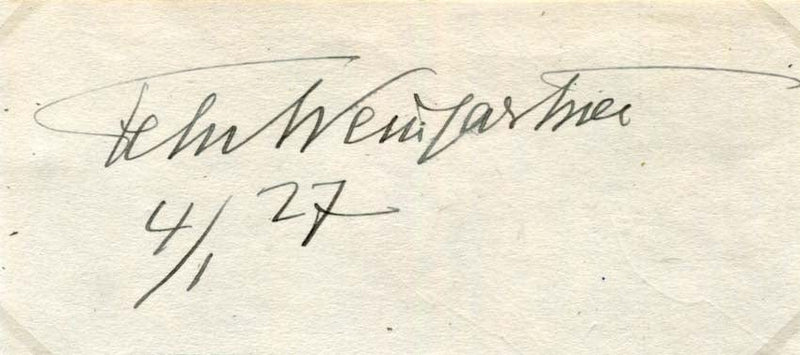 Felix Weingartner
4/1 27